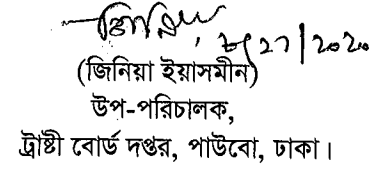 জিনিয়া,
(জিনিয়া ইয়াসমীন)
উপ-পরিচালক,
ট্রাষ্টী বোর্ড দপ্তর, পাউবো, ঢাকা।